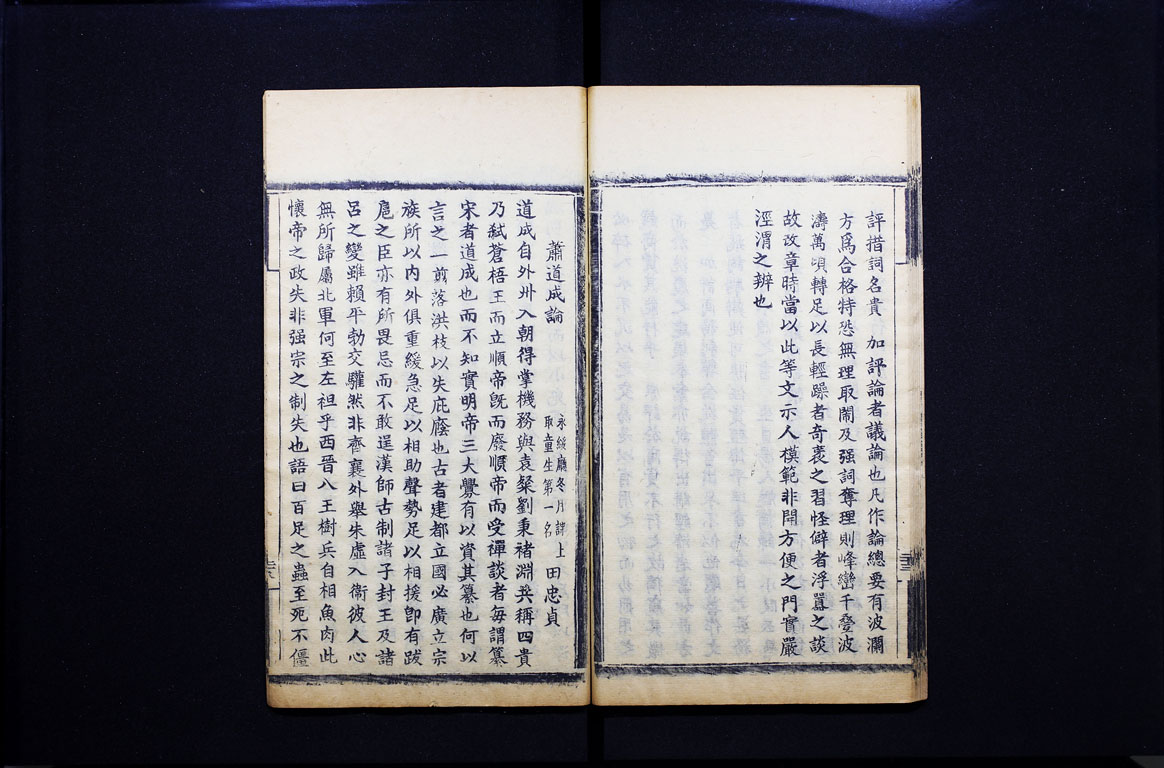 評措詞名貴　加評論者議論也凡作論總要有波瀾
方爲合格特恐無理取鬧及强詞奪理則峰巒千疊波
濤萬頃轉足以長輕躁者奇袤之習怪僻者浮囂之談
故改章時當以此等文示人模範非開方便之門實嚴
涇渭之辨也
蕭道成論
永綏廳冬月課上
取童生第一名
田忠貞
道成自外州入朝得掌機務與袁粲劉秉褚淵㒰稱四貴
乃弑蒼梧王而立順帝旣而廢順帝而受禪談者每謂纂
宋者道成也而不知實明帝三大釁有以資其纂也何以
言之一剪落洪枝以失庇廕也古者建都立國必廣立宗
族所以内外俱重緩急足以相助聲勢足以相援卽有跋
扈之臣亦有所畏忌而不敢逞漢師古制諸子封王及諸
呂之變雖賴平勃交驩然非齊襄外舉朱虛入衛彼人心
無所歸屬北軍何至左袒乎西晉八王樹兵自相魚肉此
懷帝之政失非强宗之制失也語曰百足之蟲至死不僵